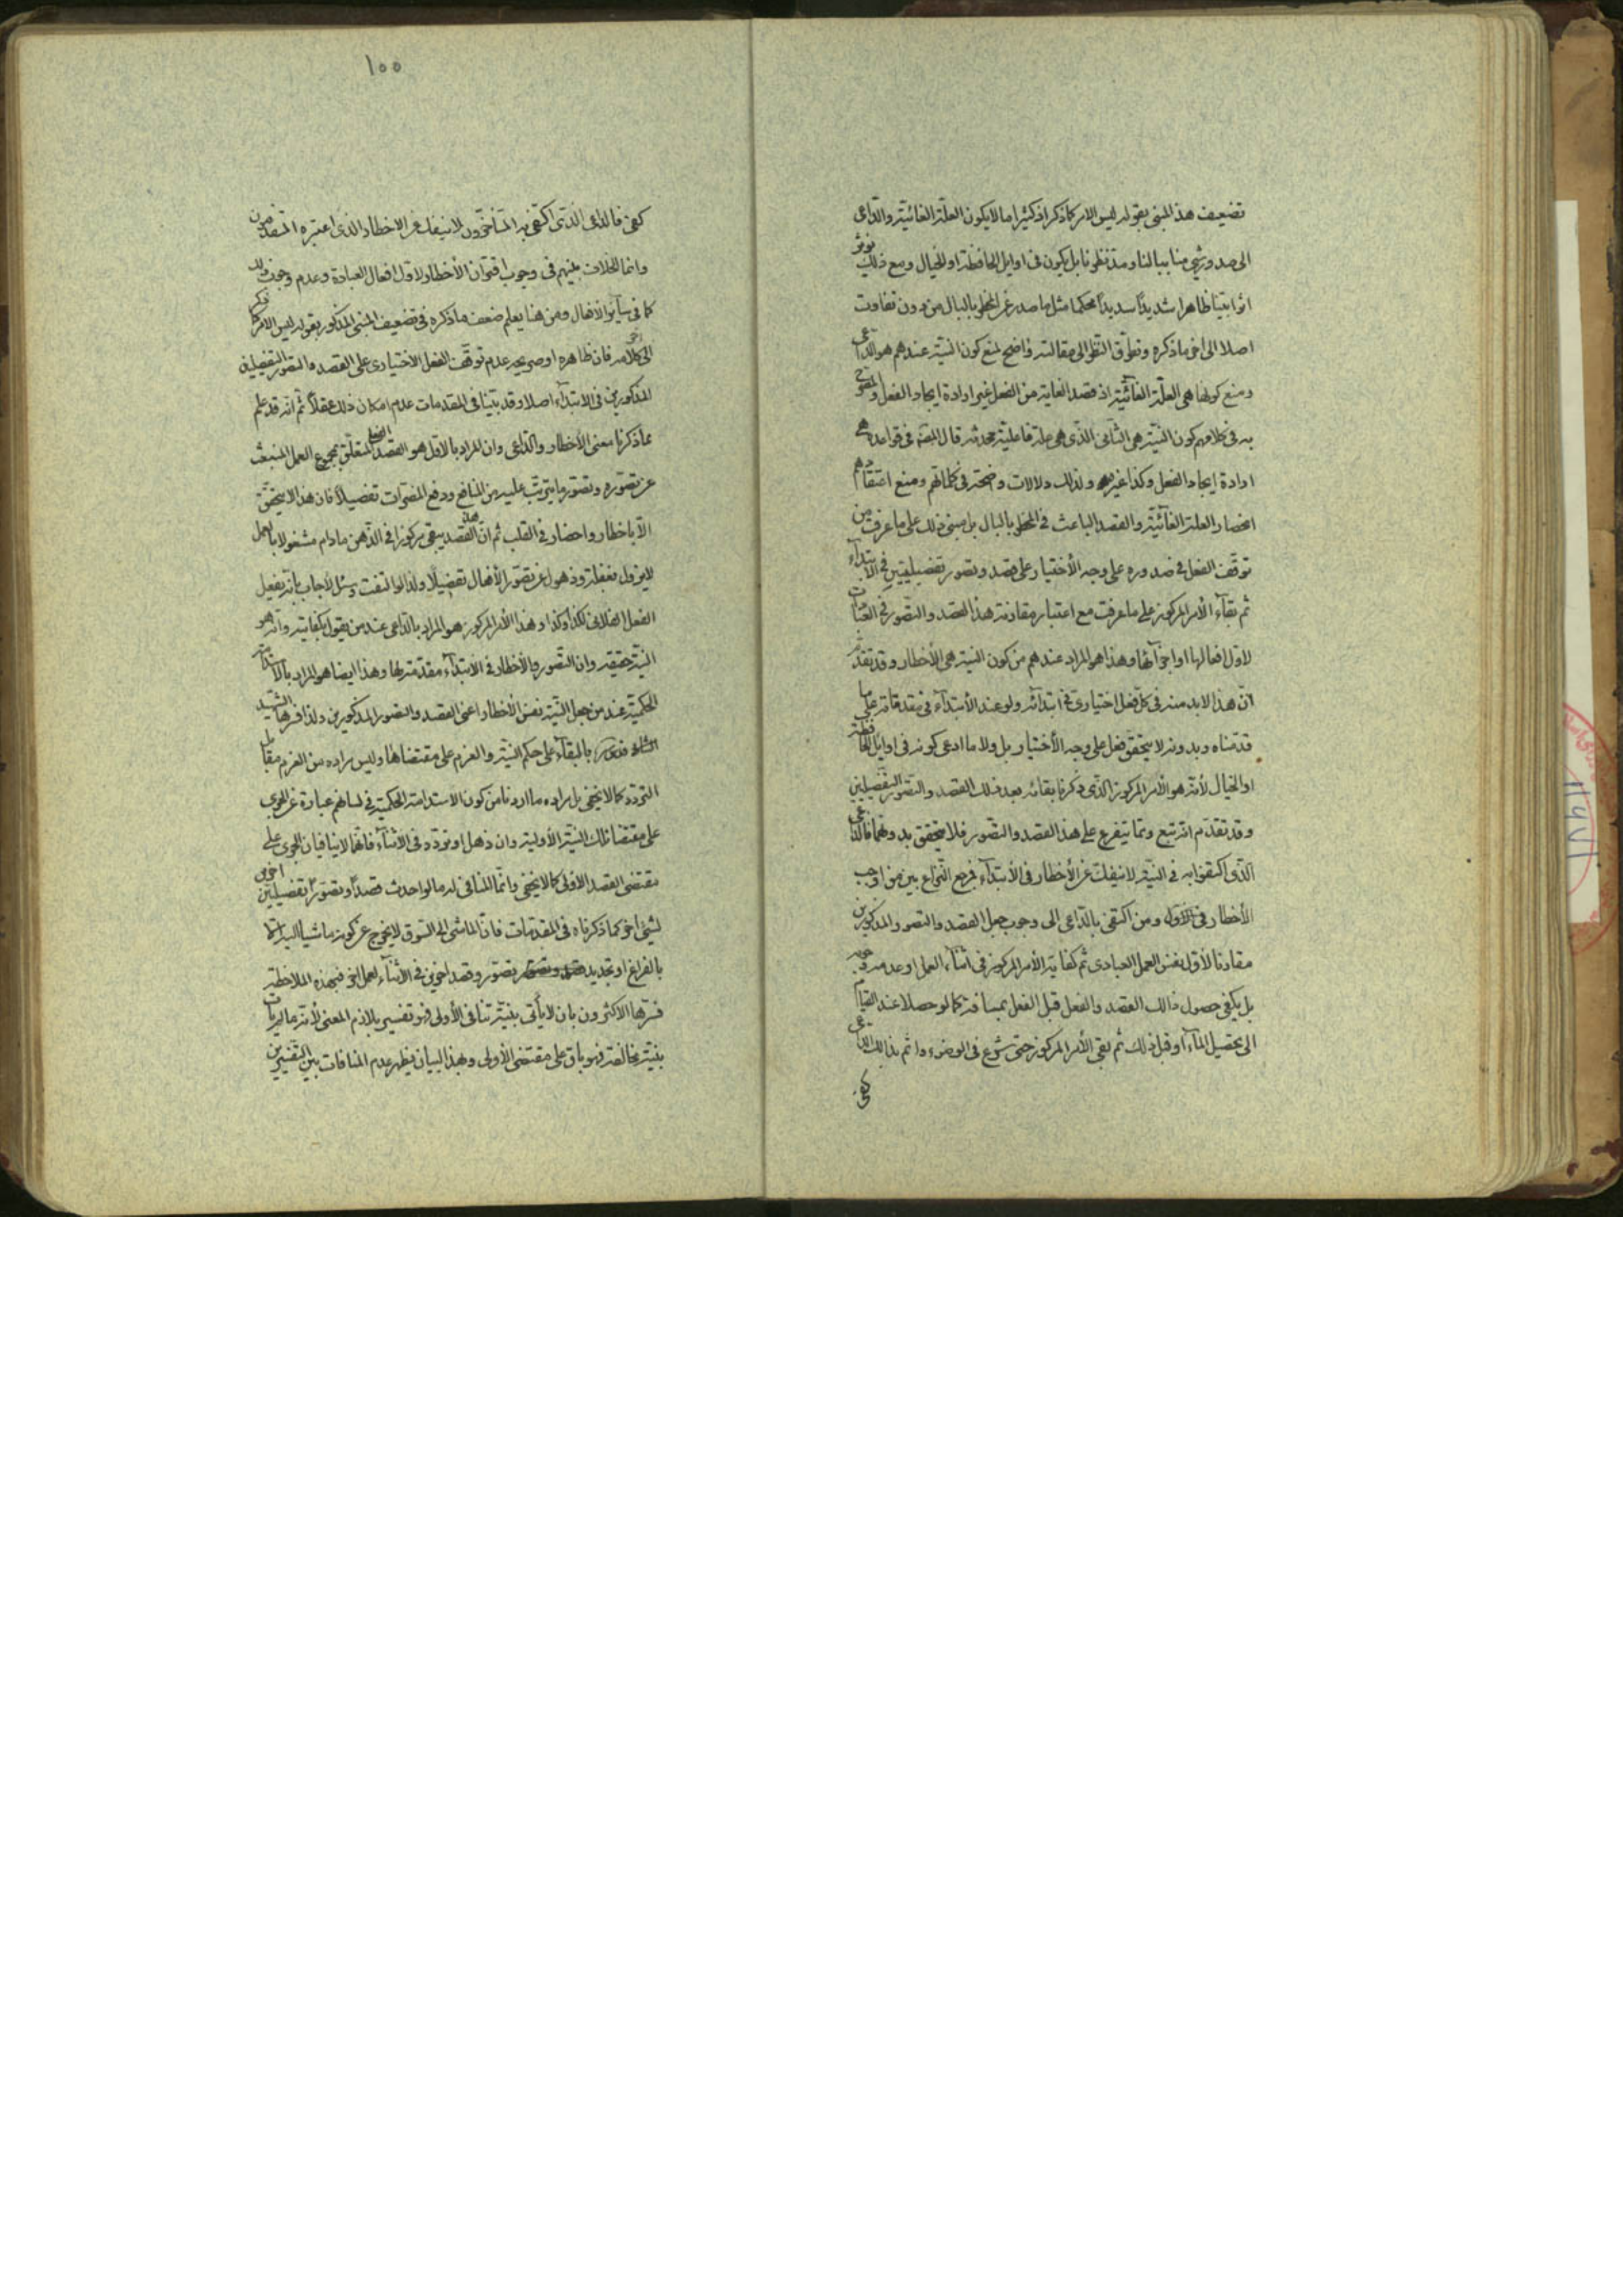 تضعيف هذا المبنى بقوله ليس الامر كما ذكر اذ كثيرا ما لا يكون العلّة الغائيّة والدّاعى
الى صدور شئ منا ببالنا ومد نظرنا بل يكون فى اوايل الحافظة او الخيال ومع ذلك يؤثر
اثرا بيّنا ظاهرا شديدًا سديدًا محكما مثل ما صدر عن المخطر بالبال من دون تفاوت
اصلا الى اخر ما ذكره وتطرّق النّظر الى مقالته واضح لمنع كون النيّة عندهم هو الدّاعى
ومنع كونها هى العلّة الغائيّة اذ قصد الغاية من الفعل غير ارادة ايجاد الفعل و المصرّح
به فى كلامهم كون النيّة هى الثّانى الّذى هى علة فاعليّة محدثة قال الش فى قواعده هى
ارادة ايجاد الفعل وكذا غيره ولذلك دلالات واضحة فى كلماتهم ومنع اعتقادهم
انحصار العلة الغائيّة والقصد الباعث فى المخطر بالبال بل مبنى ذلك على ما عرفت من
توقّف الفعل فى صدوره على وجه الأختيار على قصد وتصور تفصيليّين فى الابتدآء
ثم بقآء الأمر المركوز على ما عرفت مع اعتبار مقارنة هذا القصد والتّصور فى العبادات
لاوّل افعالها او اجزآئها وهذا هو المراد عندهم من كون النيّة هى الأخطار وقد تقدّم
انّ هذا لا بد منه فى كلّ فعل اختيارىّ فى ابتدائه ولو عند الأبتدآء فى مقدّماته على ما
قدّمناه وبدونه لا يتحقّق فعل على وجه الأختيار بل ولا ما ادعى كونه فى اوايل الحافظة
او الخيال لأنه هو الأمر المركوز الّذى ذكرنا بقائه بعد ذلك القصد والتّصوّر التفصيليين
وقد تقدّم انّه تبع وانما يتفرع على هذا القصد والتّصور فلا يتحقق بدونهما فالدّاعى
الّذى اكتفوا به فى النيّة لا ينفكّ عن الأخطار فى الأبتدآء فرجع النّزاع بين من اوجب
الأخطار فى الأوّل ومن اكتفى بالدّاعى الى وجوب جعل القصد والتصور المذكورين
مقارنا لأوّل نفس العمل العبادى ثم كفاية الأمر المركوز فى اثنآء العمل او عدم وجوبه
بل يكفى حصول ذالك القصد والفعل قبل الفعل بمسافة كما لو حصلا عند القيام
الى تحصيل المآء او قبل ذلك ثم بقى الأمر المركوز حتى شرع فى الوضوء واتم بذالك الدّاعى
كفى
١٠٠
كفى فالدّاعى الّذى اكتفى به المتأخّرون لا ينفك عن الاخطار الّذى اعتبره المتقدمون
وانما الخلاف بينهم فى وجوب اقتران الأخطار لاوّل افعال العبادة وعدم وجوب ذلك
كما فى سآئر الافعال ومن هنا يعلم ضعف ما ذكره فى تضعيف المبنى المذكور بقوله ليس الامر كما ذكر
الى اخر كلامه فان ظاهره او صريحه عدم توقّف الفعل الاختيارى على القصد والتصوّر التفصيليّين
المذكورين فى الابتدآء اصلا وقد بيّنا فى المقدمات عدم امكان ذلك عقلاً ثم انّه قد علم
مما ذكرنا معنى الأخطار والدّاعى وان المراد بالأوّل هو القصد الفعلى المتعلّق بمجموع العمل المنبعث
عن تصوّره وتصوّر ما يترتّب عليه من المنافع ودفع المضرّات تفصيلاً فان هذا لا يتحقّق
الّا باخطار واحضار فى القلب ثم انّ هذا القصد يبقى مركوزا فى الذّهن ما دام مشغولا بالعمل
لا يزول بغفلة وذهول عن تصوّر الأفعال تفصيلًا ولذا لو التفت وسئل لأجاب بانّه يفعل
الفعل الفلانى لكذا وكذا وهذا الأمر المركوز هو المراد بالدّاعى عند من يقول بكفايته وانّه هو
النيّة حقيقة وان التّصور والأخطار فى الابتدآء مقدّمة لها وهذا ايضا هو المراد بالاستدامة
الحكميّة عند من جعل النيّة نفس الأخطار اعنى القصد والتصور المذكورين ولذا فسّرها الشّهيد
بالبقآء على حكم النيّة والعزم على مقتضاها وليس مراده من العزم مقابل
التردد كما لا يخفى بل مراده ما اردنا من كون الاستدامة الحكميّة فى لسانهم عبارة عن الجرى
على مقتضا تلك النيّة الأوليّة وان ذهل او تردّد فى الأثنآء فانّهما لا ينافيان الجرى على
مقتضى القصد الأوّلى كما لا يخفى وانّما المنافى له ما لو احدث قصدًا وتصوّرًا تفصيليّين اخرين
لشئ اخر كما ذكرناه فى المقدّمات فانّ الماشى الى السّوق لا يخرج عن كونه ماشيا اليه الّا
بالفراغ او تجديد تصوّر وقصد اخرين فى الأثنآء لعمل اخر فبهذه الملاحظة
فسّرها الاكثرون بان لا يأتى بنيّة تنافى الأولى فهو تفسير بلازم المعنى لأنه ما لم يات
بنيّة مخالفة فهو باق على مقتضى الأولى وبهذا البيان يظهر عدم المنافات بين التّفسيرين